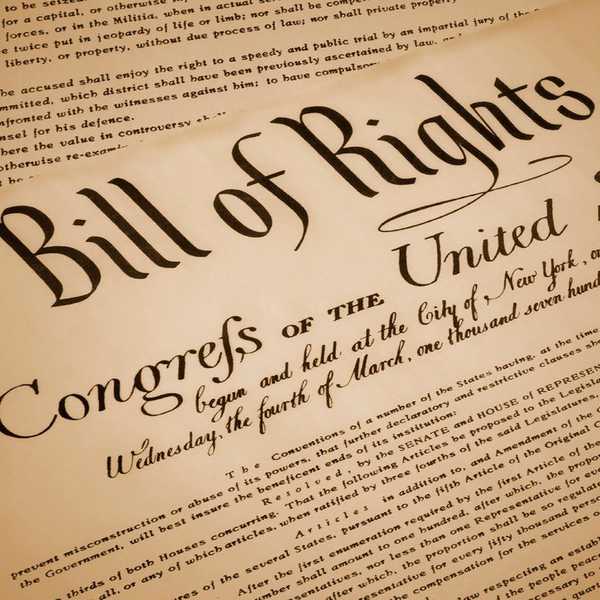 to be seized
for a capital, or otherwise
forces, or in the Militia, when in actual
e twice put in jeopardy of life or limb; nor shall be compe
liberty, or property, without due process of law; nor shall private property
he accused shall enjoy the right to a speedy and public trial by an impartial jury of the S
mmitted, which district shall have been previously ascertained by law, and
nfronted with the witnesses against him; to have compulsor
nsel for his defence.
here the value in controversy shall
otherwise re-exami
Bill of Rights
Congreſs OF THE United
begun and held at the City of New York, on
Wednesday, the fourth of March, one thousand seven hund
The Conventions of a number of the States having, at the time
prevent misconstruction or abuse of its powers, that further declaratory and restrictive clauses sho
the Government, will best insure the beneficent ends of its institution:
Resolved, by the SENATE and HOUSE of REPRESEN
o thirds of both Houses concurring. That the following Articles be proposed to the Legisla
all, or any of which articles, when ratified by three fourths of the said Legislatures,
Articles in addition to, and Amendment of the C
ures of the several States, pursuant to the fifth Article of the Original C
After the first enumeration required by the first Article of the
number shall amount to one hundred, after which, the propo
atives, nor less than one Representative for ever
after which, the proportion shall be so regula
presentative for every fifty thousand person
the compensation for the services o
law respecting an establi